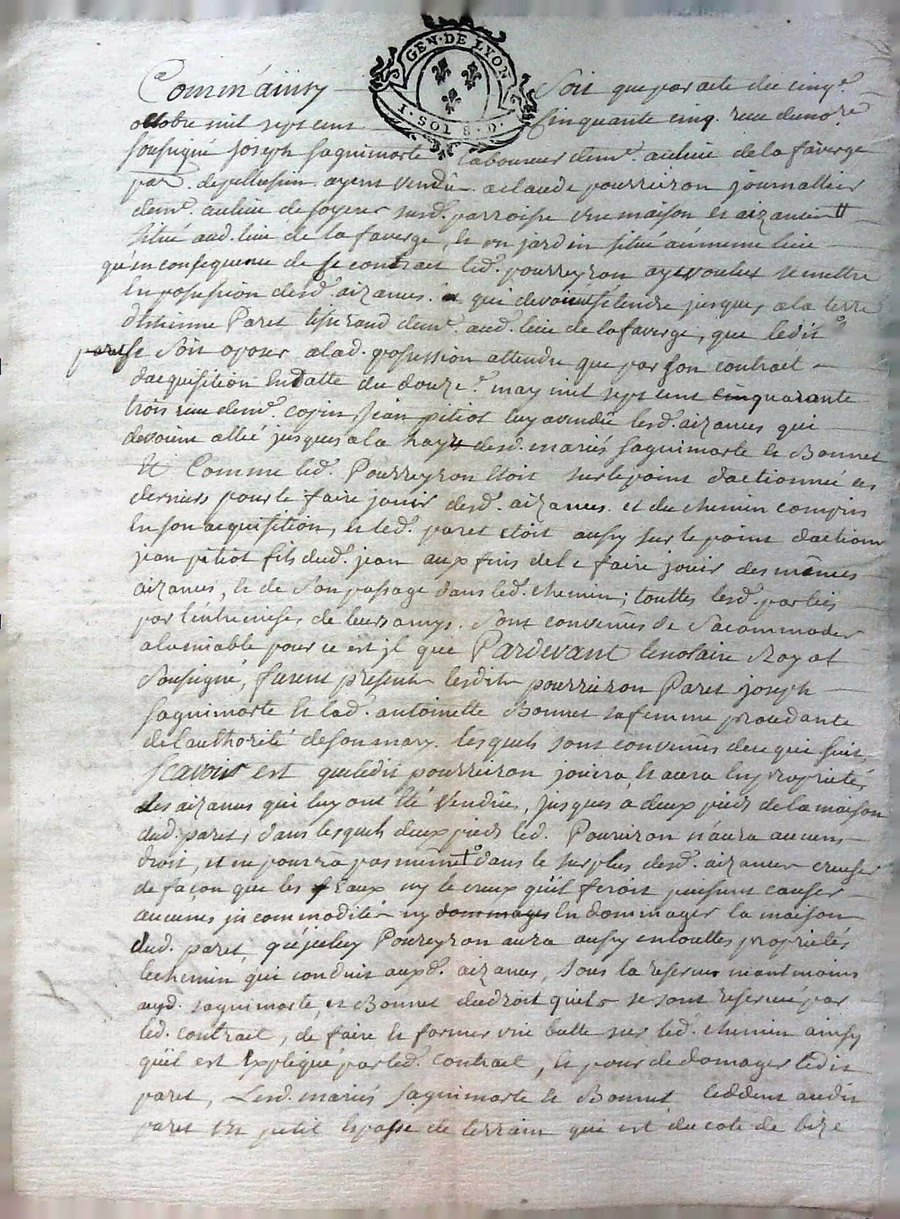 GEN·DE LYON
1·SOL 8·D·
Comm'ainsy Soit que par acte du cinqe.
octobre mil sept cent Cinquante cinq recu demoe.
soussigné Joseph Jaquimorte Laboureur demt. au lieu de la faverge
parr. de pellussin ayent vendu a claude pourreiron journallier
demt. au lieu de soyeres susd. parroisse une maison et aizances
situé aud. lieu de la faverge, et un jardin situé au meme lieu
qu'en consequence de se contrat led. pourreyron aye voulu se mettre
en posession desd. aizances qui devoint s'etendre jusques a la terre
d'Etienne Paret tisserand demt. aud. lieu de la faverge, que ledit
paret se soit oposer a lad. posession attendu que par son contrat
d'acquisition en datte du douze may mil sept cent cinquarante
trois recu demt. cogin Jean pitiot luy a vendu lesd. aizances qui
devoint allé jusques a la haye desd. mariés Jaquimorte et Bonnet
Et Comme led. Pourreyron etoit sur le point d'actionné ces
derniers pour le faire jouir desd. aizances et du chemin compris
en son acquisition, et led. paret etoit aussy sur le point d'actionner
jean pitiot fils dud. jean aux fins de le faire jouir des mêmes
aizances, et de son passage dans led. chemin; touttes lesd. parties
par l'entremises de leurs amys. Sont convenües de s'acommoder
a l'amiable pour ce est jl que Pardevant le notaire Royal
soussigné, furent présents lesdits pourreiron Paret joseph
Jaquimorte et lad. antoinette Bonnet sa femme procedante
de l'authorité de son mary. lesquels sont convenus de ce qui suit,
scavoir est que ledit pourreiron jouira et aura en proprieté,
Les aizances qui luy ont été vendue, jusques à deux pieds de la maison
dud. paret, dans lesquels deux pieds led. Pourreiron n'aura aucuns
droit, et ne pourra pas mème dans le surplus desd. aizances creuser
de façon que les Eaux ny le creux qu'il feroit puissent causer
aucunes jncommodités ny dommages En dommager la maison
dud. paret, qu'jceluy Poureyron aura aussy en touttes proprietés
le chemin qui conduit auxd. aizances, sous la reserve néantmoins
auxd. Jaquimorte, et Bonnet du droit quils se sont reservé par
led. contrat, de faire et former une butte sur led. chemin ainsy
qu'il est Expliqué par led. contrat, et pour dedomager ledit
paret, Lesd. mariés Jaquimorte et Bonnet ceddent audit
paret un petit Espasse de terrain qui est du coté de bize